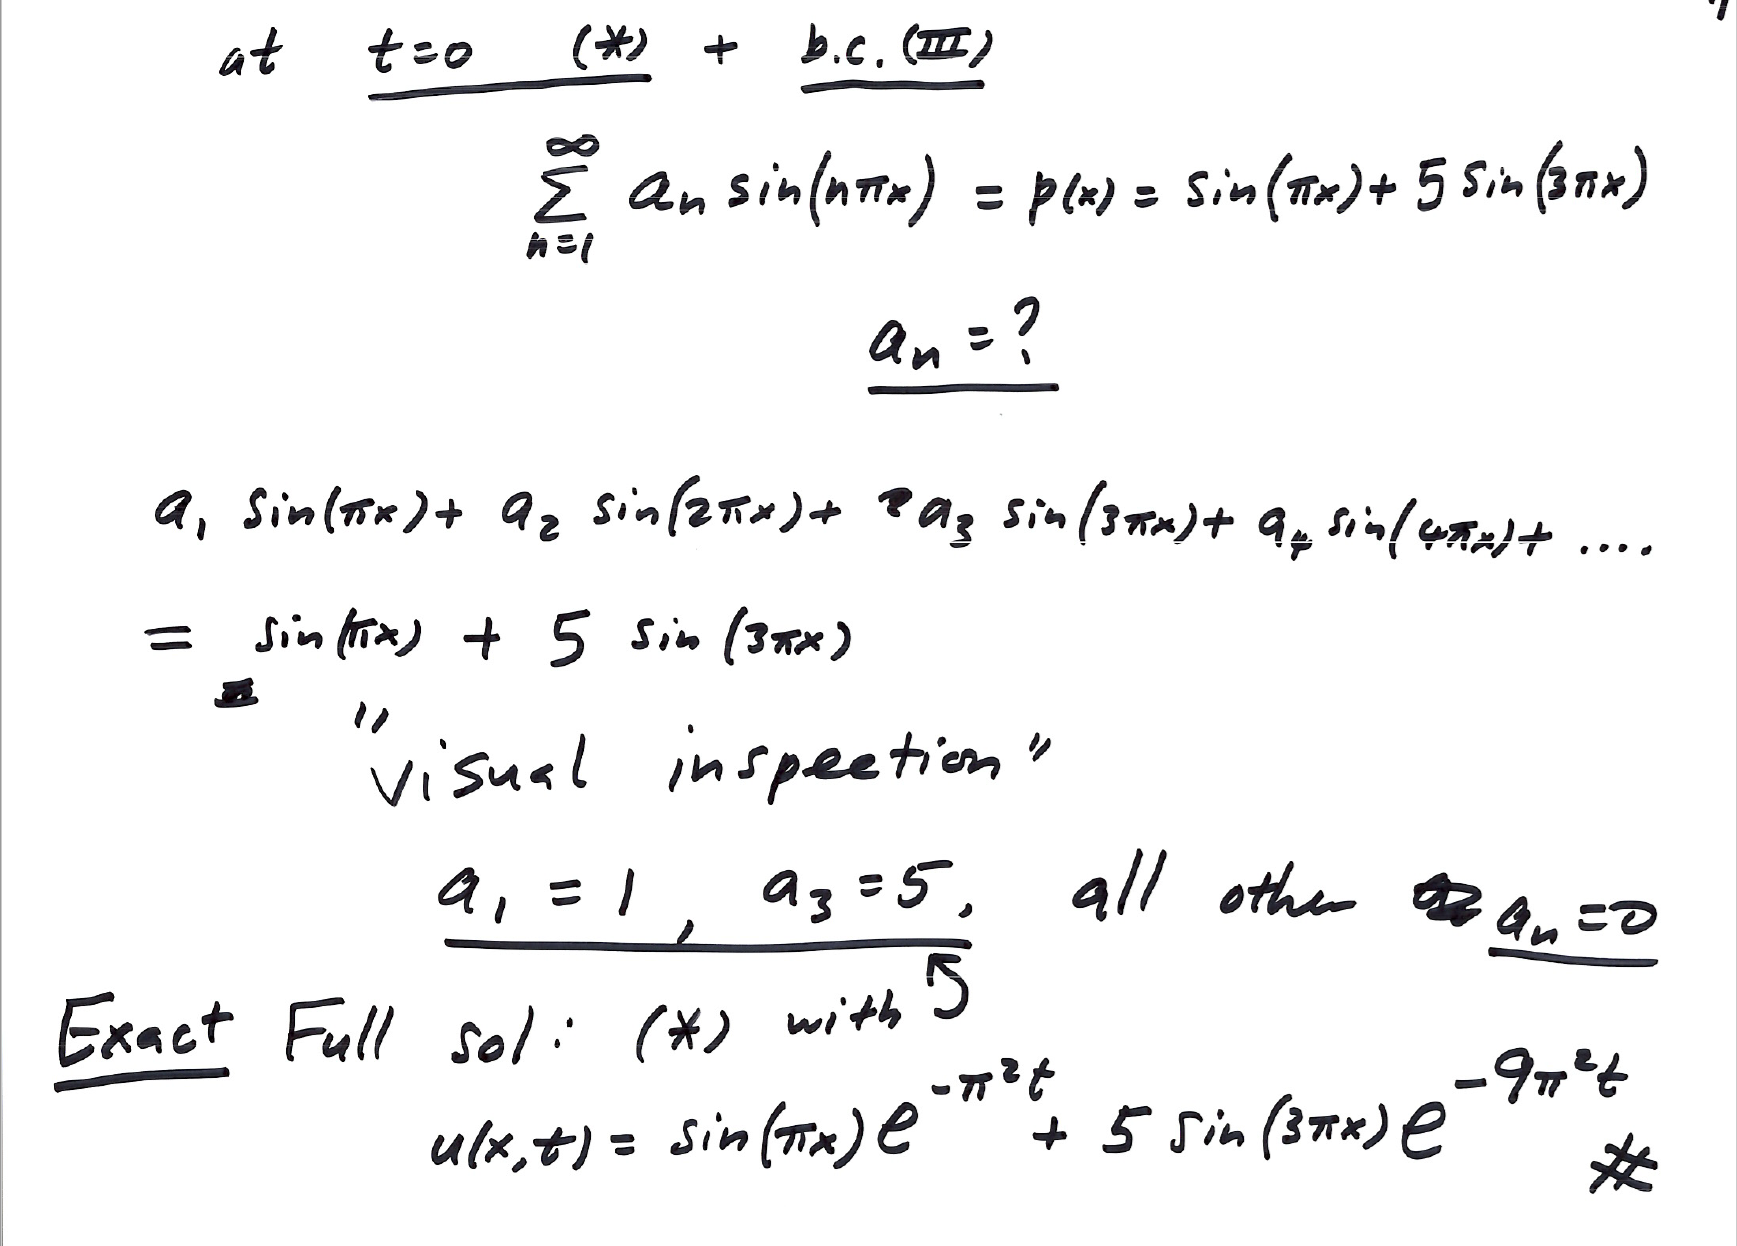 at t=0 (*) + b.c. (III)
∞
Σ an sin(nπx) = p(x) = sin(πx) + 5 sin(3πx)
n=1
an = ?
a1 sin(πx) + a2 sin(2πx) + a3 sin(3πx) + a4 sin(4πx) + ....
= sin(πx) + 5 sin(3πx)
"visual inspection"
a1 = 1, a3 = 5, all other an = 0
Exact Full sol: (*) with
u(x,t) = sin(πx) e^{-π²t} + 5 sin(3πx) e^{-9π²t} #